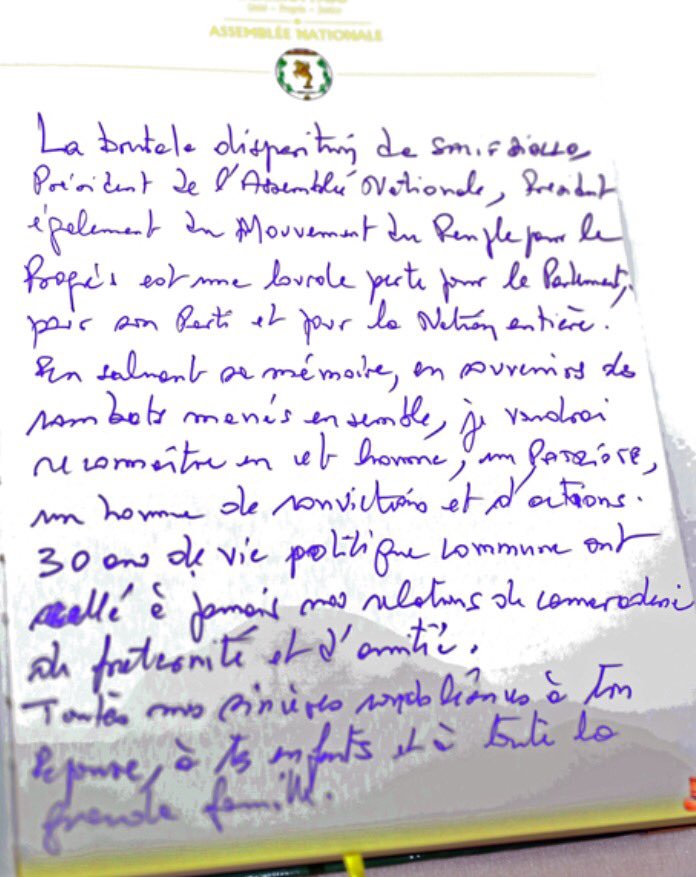 Unité - Progrès - Justice
ASSEMBLÉE NATIONALE
La brutale disparition de
Président de l'Assemblée Nationale, Président
également du Mouvement du Peuple pour le
Progrès est une lourde perte pour le Parlement,
pour son Parti et pour la Nation entière.
En saluant sa mémoire, en souvenirs des
combats menés ensemble, je voudrai
reconnaître en cet homme, un
un homme de convictions et d'actions.
30 ans de vie politique commune ont
scellé à jamais nos relations de camaraderie
de fraternité et d'amitié.
Toutes mes sincères condoléances à ton
épouse, à tes enfants et à toute la
grande famille.